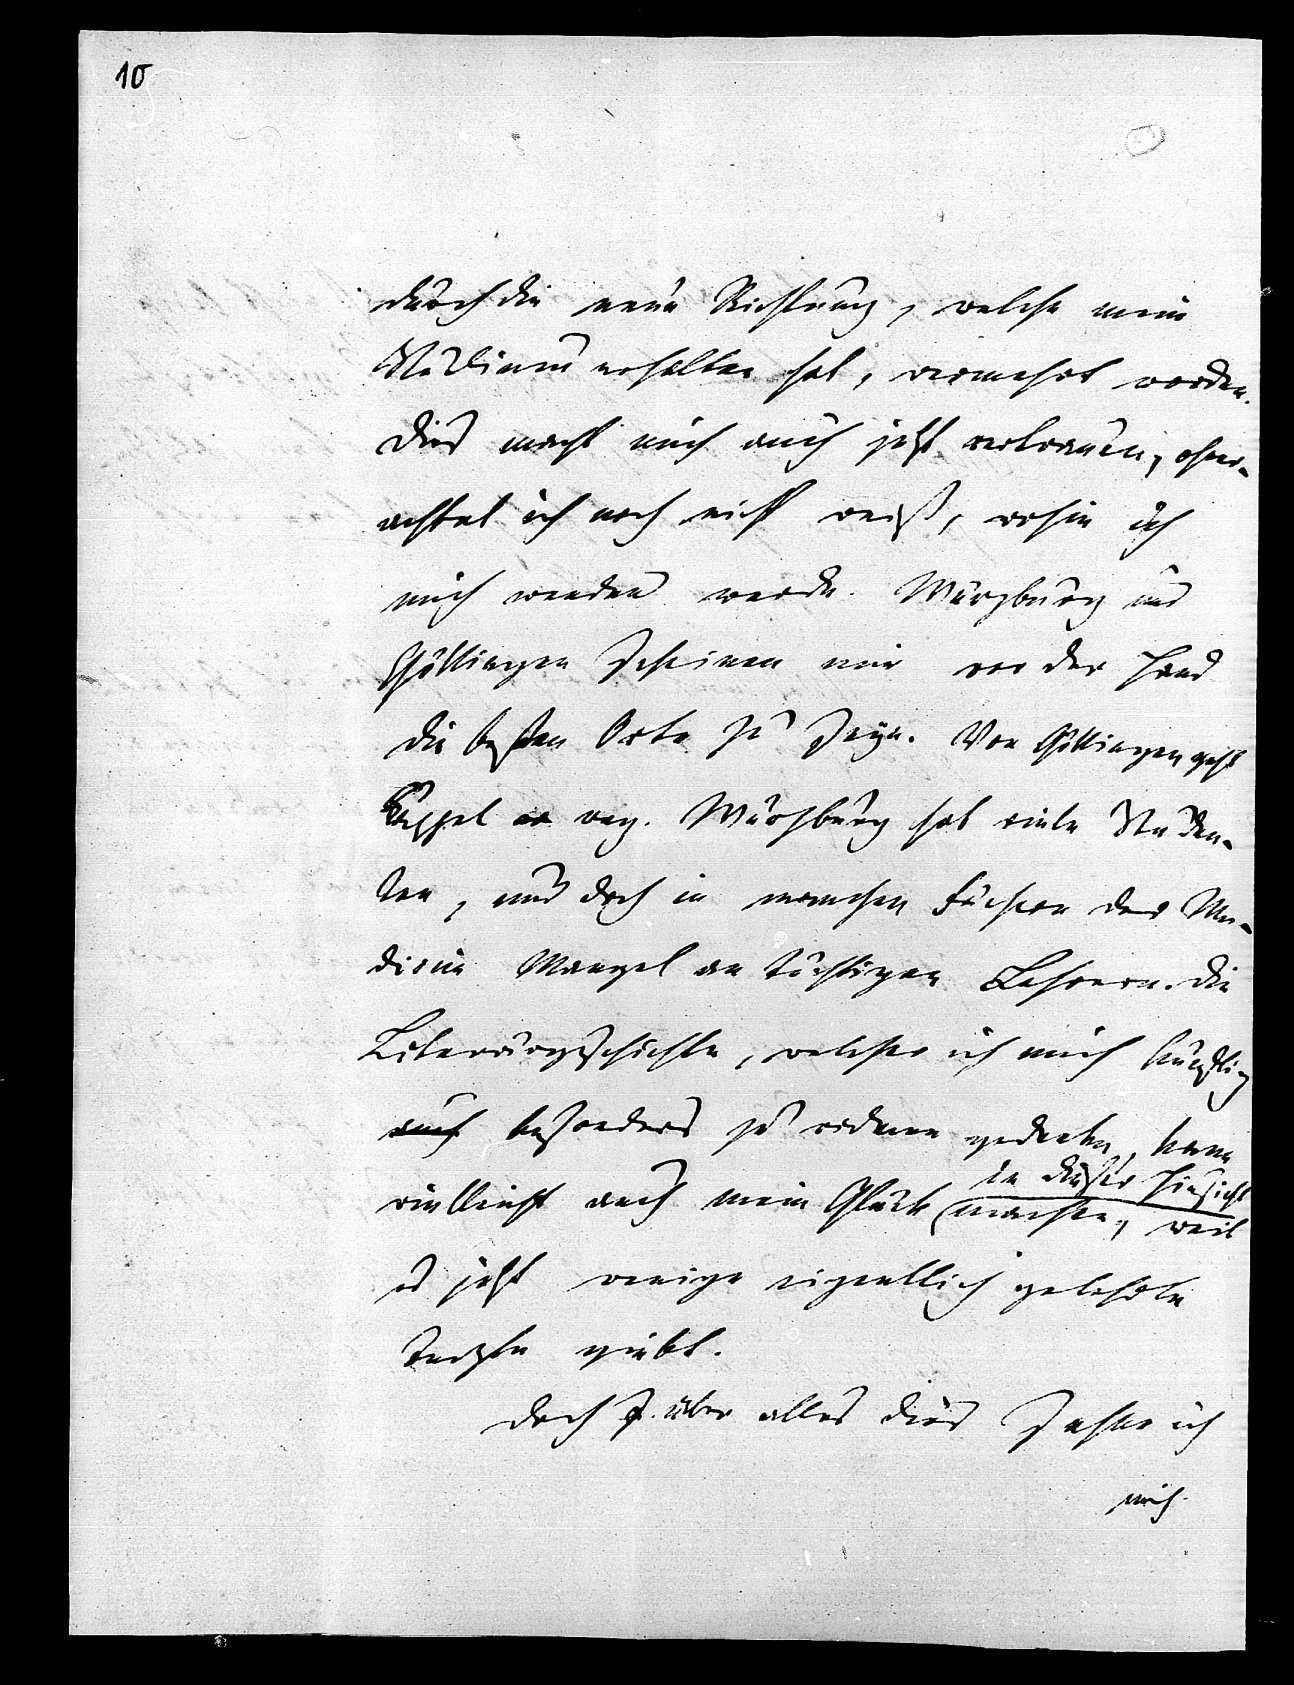 10
durch die neue Richtung, welche mein
Studium erhalten hat, vermehrt worden.
Dies macht mich auch jetzt vertrauen, ohner-
achtet ich noch nicht weiß, wohin ich
mich wenden werde. Würzburg und
Göttingen scheinen mir vor der Hand
die besten Orte zu seyn. Von Göttingen geht
weg. Würzburg hat viele Studen-
ten, und doch in manchen Fächern der Me-
dicin Mangel an tüchtigen Lehrern. Die
Literärgeschichte, welcher ich mich künftig
auch besonders zu widmen gedenke, kann
in dieser Hinsicht
vielleicht auch mein Glück machen, weil
es jetzt wenige eigentlich gelehrte
Aerzte giebt.
Doch über alles dies sehne ich
mich